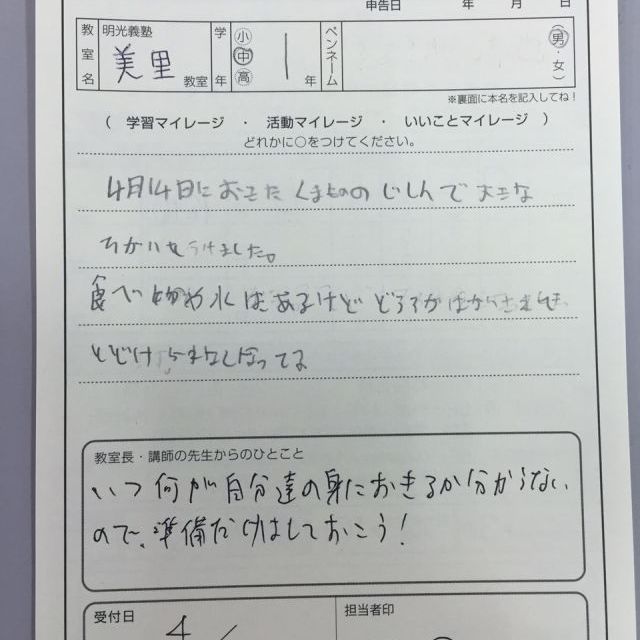 申告日 年 月 日
教室名 明光義塾 美里 教室 学年 小 中 高 1 年 ペンネーム (男・女)
※裏面に本名を記入してね!
( 学習マイレージ ・ 活動マイレージ ・ いいことマイレージ )
どれかに○をつけてください。
4月14日におきた くまもとのじしんで 大きな
ました。
食べ物や水はあるけど どうろが
とどけ なくなってる
教室長・講師の先生からのひとこと
いつ何が自分達の身におきるか分からない
ので、準備だけはしておこう!
受付日 4/ 担当者印